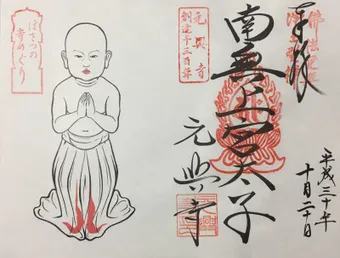 奉拝
平成三十年
十月二十日
南無上宮太子
元興寺
元興寺
創建千三百年
ぼさつの
寺めぐり